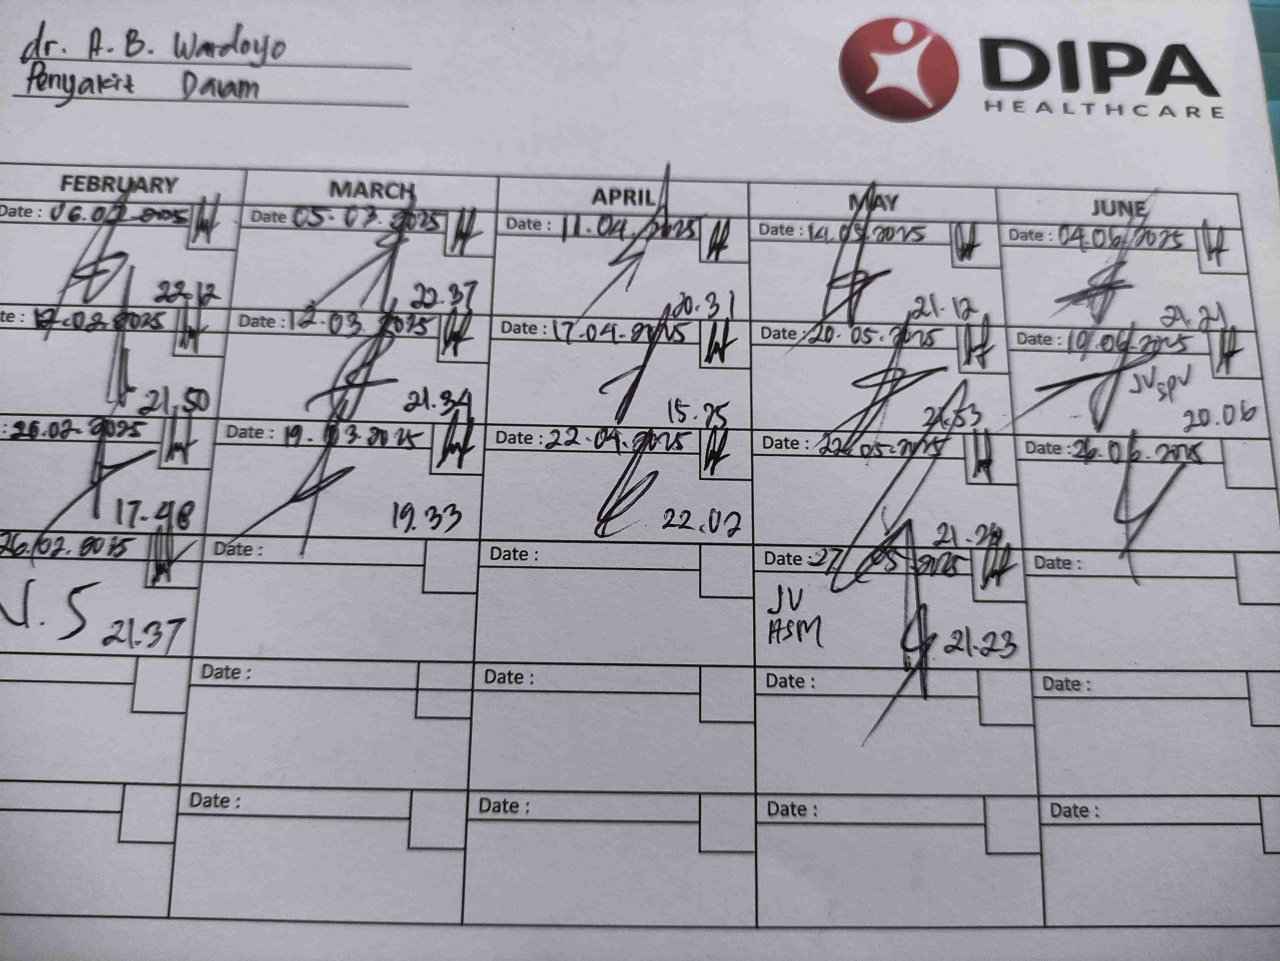 dr. A. B. Wardoyo
Penyakit Dalam
DIPA
HEALTHCARE
FEBRUARY MARCH APRIL MAY JUNE
Date : 06.02.2025 Date 05.03.2025 Date : 11.04.2025 Date : 14.05.2025 Date : 04.06.2025
22.12 22.37 20.31 21.12 21.21
te : 12.02.2025 Date : 12.03.2025 Date : 17.04.2025 Date : 20.05.2025 Date : 19.06.2025
JV SPV
21.50 21.34 15.25 21.53 20.06
: 26.02.2025 Date : 19.03.2025 Date : 22.04.2025 Date : 22.05.2025 Date : 26.06.2025
17.48 19.33 22.02
26.02.2025 Date : Date : Date : 27.05.2025 Date :
J.S 21.37 JV
ASM 21.23
Date : Date : Date : Date :
Date : Date : Date : Date :